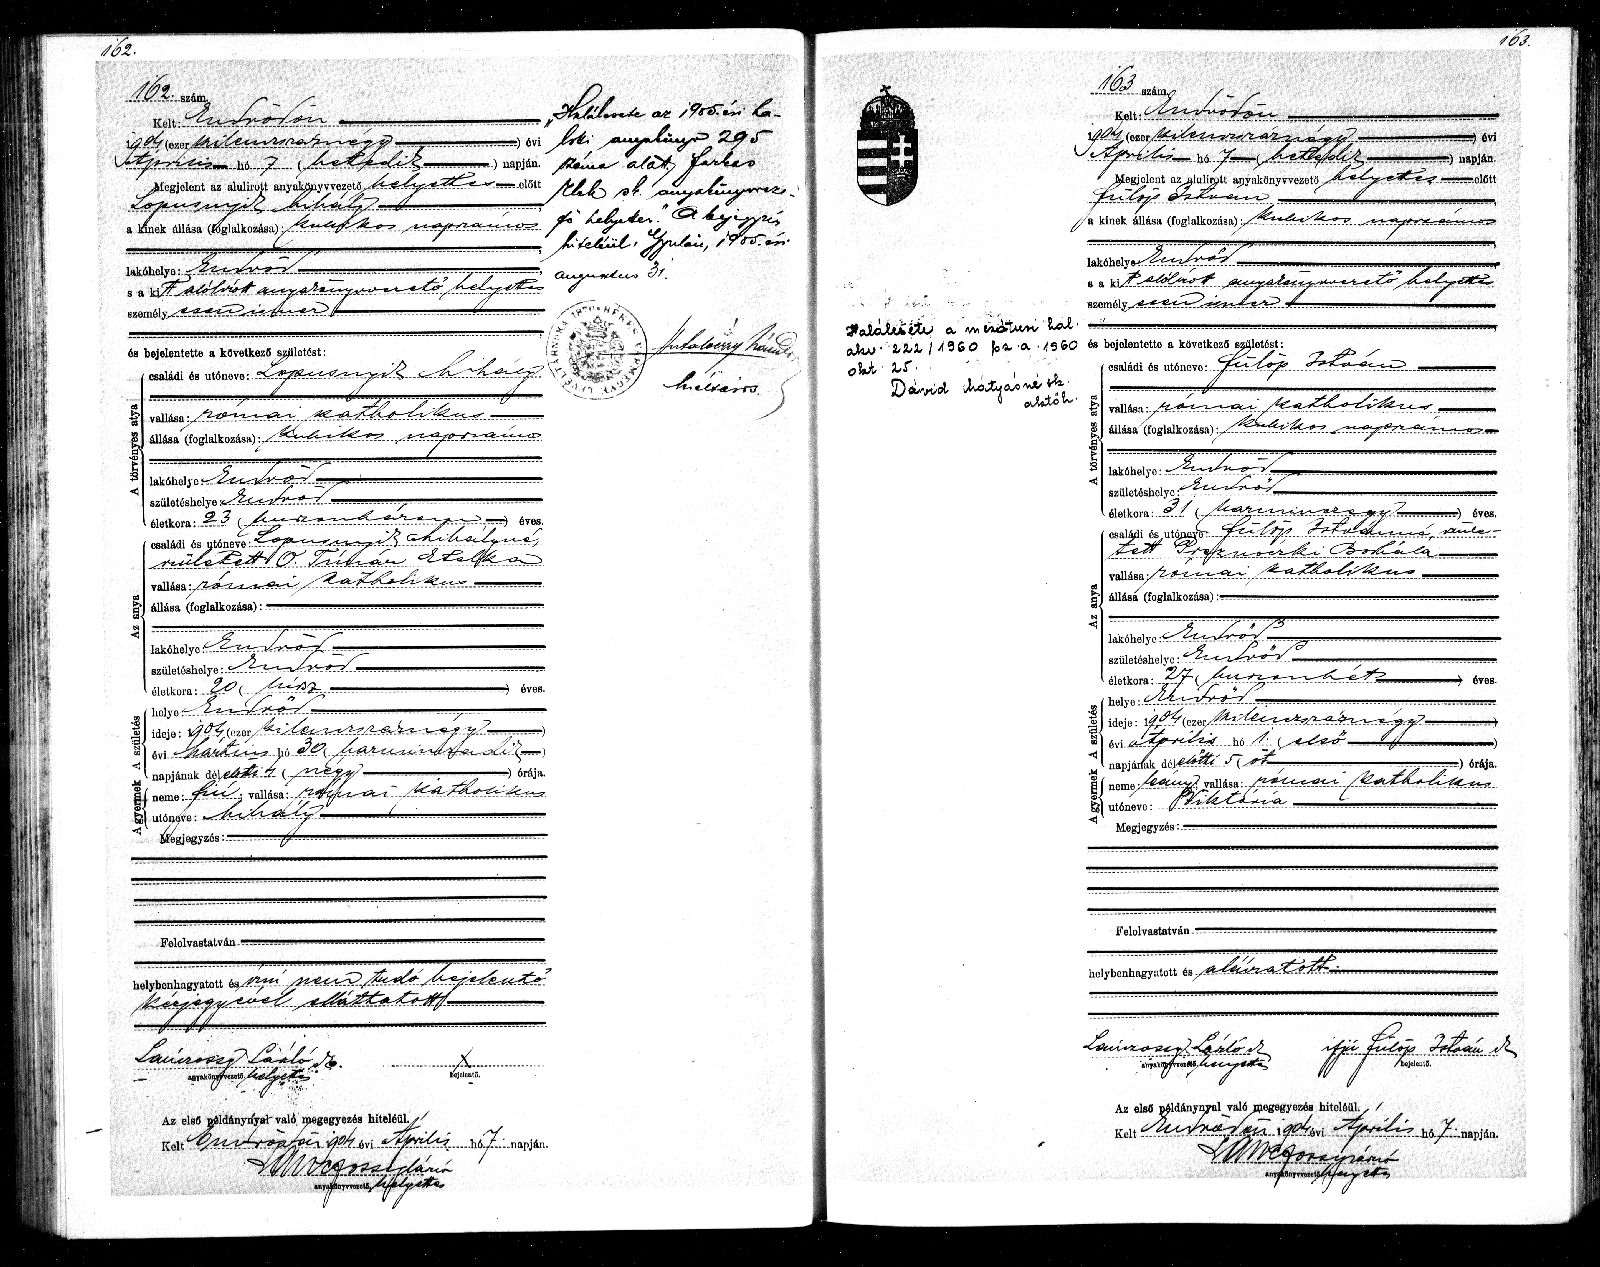 162.
162. szám.
Kelt: Endrődön
1904 (ezer kilenczszáznégy) évi
Április hó 7 (hetedik) napján.
Megjelent az alulirott anyakönyvvezető helyettes előtt
Mihály
a kinek állása (foglalkozása): kubikos napszámos
lakóhelye: Endrőd
s a kit alólirott anyakönyvvezető helyettes
személyesen ismer
és bejelentette a következő születést:
A törvényes atya
családi és utóneve: Mihály
vallása: római katholikus
állása (foglalkozása): kubikos napszámos
lakóhelye: Endrőd
születéshelye: Endrőd
életkora: 23 (huszonhárom) éves.
Az anya
családi és utóneve: Mihályné,
született O. Tímár Etelka
vallása: római katholikus
állása (foglalkozása):
lakóhelye: Endrőd
születéshelye: Endrőd
életkora: 20 (húsz) éves.
A születés
helye: Endrőd
ideje: 1904 (ezer kilenczszáznégy)
évi Mártius hó 30 (harminczadik)
napjának dél előtti 4 (négy) órája.
A gyermek
neme: fiú; vallása: római katholikus
utóneve: Mihály
Megjegyzés:
Felolvastatván
helybenhagyatott és írni nem tudó bejelentő
kézjegyével elláttatott
László
anyakönyvvezető helyettes
x
bejelentő.
Az első példánynyal való megegyezés hiteléül.
Kelt Endrődön 1904 évi Április hó 7. napján.
anyakönyvvezető helyettes
„Halálesete az 1905. évi ha-
lotti anyakönyv 295
száma alatt. Farkas
sk. anyakönyvveze-
tő helyettes." A bejegyzés
hiteléül. Gyulán, 1905. évi
augusztus 31.
163.
163 szám.
Kelt: Endrődön
1904 (ezer kilenczszáznégy) évi
Április hó 7 (hetedik) napján.
Megjelent az alulirott anyakönyvvezető helyettes előtt
Fülöp István
a kinek állása (foglalkozása): kubikos napszámos
lakóhelye: Endrőd
s a kit alólirott anyakönyvvezető helyettes
személyesen ismer
és bejelentette a következő születést:
A törvényes atya
családi és utóneve: Fülöp István
vallása: római katholikus
állása (foglalkozása): kubikos napszámos
lakóhelye: Endrőd
születéshelye: Endrőd
életkora: 31 (harminczegy) éves.
Az anya
családi és utóneve: Fülöp Istvánné, szüle-
tett Borbála
vallása: római katholikus
állása (foglalkozása):
lakóhelye: Endrőd
születéshelye: Endrőd
életkora: 27 (huszonhét) éves.
A születés
helye: Endrőd
ideje: 1904 (ezer kilenczszáznégy)
évi Április hó 1. (első)
napjának dél előtti 5 (öt) órája.
A gyermek
neme: leány; vallása: római katholikus
utóneve: Viktória
Megjegyzés:
Felolvastatván
helybenhagyatott és aláíratott.
László
anyakönyvvezető helyettes
ifjú Fülöp István
bejelentő.
Az első példánynyal való megegyezés hiteléül.
Kelt Endrődön 1904 évi Április hó 7. napján.
anyakönyvvezető helyettes
Halálesete a mezőturi hal.
akv. 222/1960 fsz a. 1960
okt. 25.
Dávid Mátyásné sk.